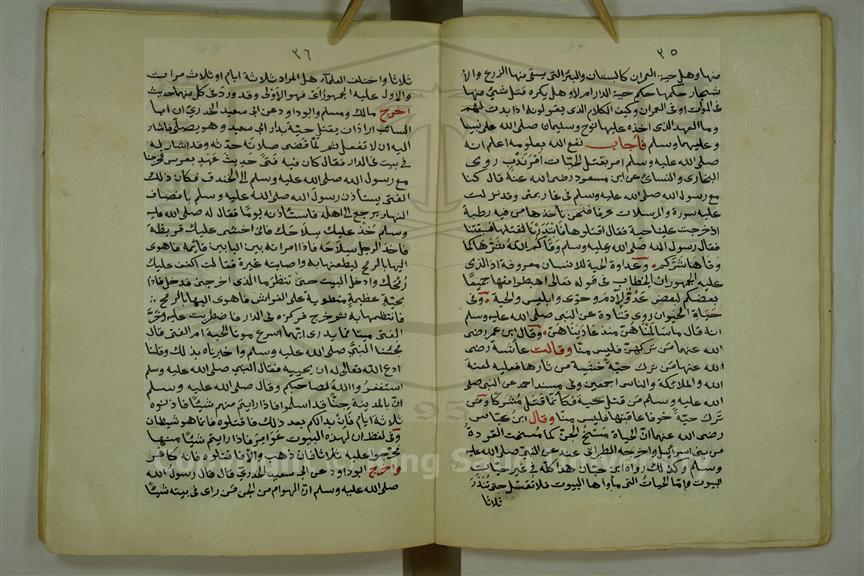 ٣٥
منها وهل حية العمران كالبستان والبئر التي يستقى منها الزرع والا
شجار حكمها حكم حية الدار ام لا وهل يكره قتل شيء منها
في الموات او في العمران وكيف الكلام الذي يقولونه اذا بدت لهم
وما العهد الذي اخذه عليها نوح وسليمان صلى الله على نبينا
وعليهما وسلم فأجاب نفع الله بعلومه اعلم انه
صلى الله عليه وسلم امر بقتل الحيات امر ندب روى
البخاري والنسائي عن ابن مسعود رضى الله عنه قال كنا
مع رسول الله صلى الله عليه وسلم في غار بمنى وقد نزلت
عليه سورة والمرسلات عرفا فنحن نأخذها من فيه رطبة
اذ خرجت علينا حية فقال اقتلوها فابتدرنا لنقتلها فسبقتنا
فقال رسول الله صلى الله عليه وسلم وقاكم الله شرها كما
وقاها شركم وعداوة الحية للانسان معروفة اذ الذي
عليه الجمهور ان الخطاب في قوله تعالى اهبطوا منها جميعا
بعضكم لبعض عدو لادم وحوى وابليس والحية وفي
حياة الحيوان روى قتادة عن النبي صلى الله عليه وسلم
انه قال ما سالمناهن منذ عاديناهن وقال ابن عمر رضى
الله عنهما من تركهن فليس منا وقالت عائشة رضى
الله عنها من ترك حية خشية من ثارها فعليه لعنة
الله والملائكة والناس اجمعين وفي مسند احمد عن النبي صلى
الله عليه وسلم من قتل حية فكأنما قتل مشركا ومن
ترك حية خوفا عاقبتها فليس منا وقال ابن عباس
رضى الله عنهما ان الحياة مسخ الجن كما مسخت القردة
من بنى اسرائيل واخرجه الطبراني عنه عن النبي صلى الله عليه
وسلم وكذلك رواه ابن حبان هذا كله في غير حيات
البيوت واما الحيات التي مأواها البيوت فلا تقتل حتى تنذر
ثلاثا
٣٦
ثلاثا واختلف العلماء هل المراد ثلاثة ايام او ثلاث مرات
والاول عليه الجمهور اى فهو الاولى وقد ورد في كل منها حديث
اخرج مالك ومسلم وابو داود عن ابي سعيد الخدري ان ابا
السائب اراد ان يقتل حية بدار ابي سعيد وهو يصلى فاشار
اليه ان لا تفعل ثم لما قضى صلاته حدثه وقد اشار له
في بيت في الدار فقال كان فيه فتى حديث عهد بعرس فخرجنا
مع رسول الله صلى الله عليه وسلم الى الخندق فكان ذلك
الفتى يستأذن رسول الله صلى الله عليه وسلم بانصاف
النهار يرجع الى اهله فاستأذنه يوما فقال له صلى الله عليه
وسلم خذ عليك سلاحك فانى اخشى عليك قريظة
فاخذ الرجل سلاحه فاذا امرأته بين البابين قائمة فاهوى
اليها بالرمح ليطعنها به واصابته غيرة فقالت اكفف عليك
رمحك وادخل البيت حتى تنظر ما الذي اخرجني فدخل فاذا
بحية عظيمة منطوية على الفراش فاهوى اليها بالرمح
فانتظمها به ثم خرج فركزه في الدار فاضطربت عليه وخر
الفتى ميتا فما يدرى ايهما اسرع موتا الحية ام الفتى قال
فجئنا النبي صلى الله عليه وسلم واخبرناه بذلك وقلنا
ادع الله تعالى له ان يحييه فقال النبي صلى الله عليه وسلم
استغفروا الله لصاحبكم وقال صلى الله عليه وسلم
ان بالمدينة جنا قد اسلموا فاذا رايتم منهم شيئا فاذنوه
ثلاثة ايام فان بدا لكم بعد ذلك فاقتلوه فانما هو شيطان
وفي لفظ ان لهذه البيوت عوامر فاذا رايتم شيئا منها
فحرجوا عليه ثلاثا فان ذهب والا فاقتلوه فانه كافر
واخرج ابو داود عن ابي سعيد الخدري قال قال رسول الله
صلى الله عليه وسلم ان الهوام من الجن فمن راى في بيته شيئا